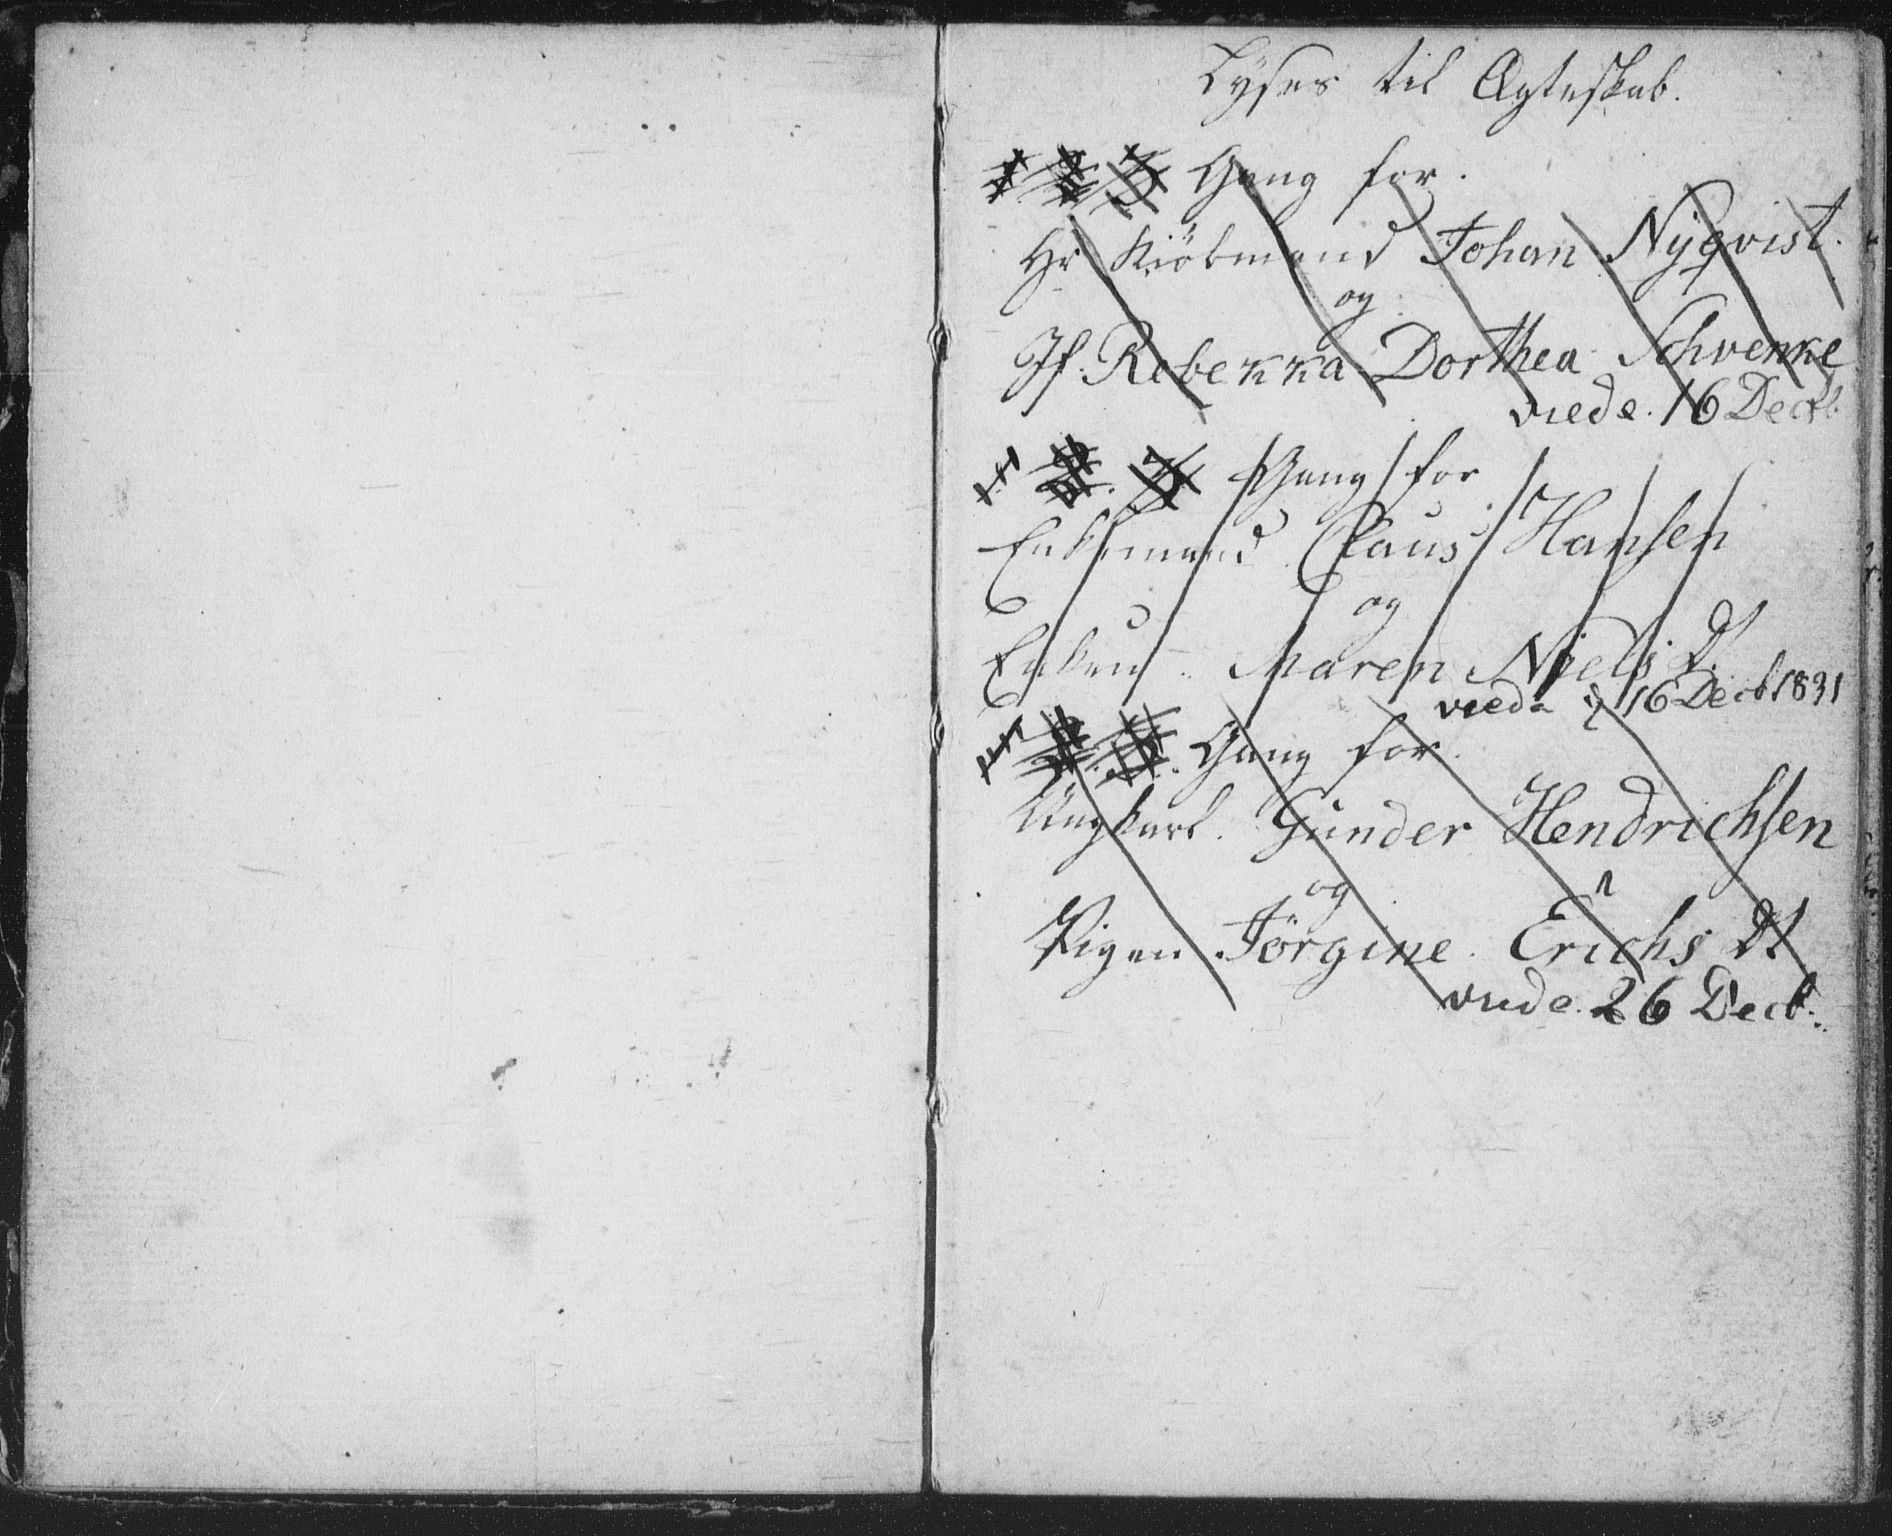 Lyses til Ægteskab.
1 2 3 Gang for.
Hr Kiöbmand Johan Nyqvist.
og
Jf. Rebekka Dorthea Schvenke
viede. 16 Decb.
1. 2. 3 Gang for
Enkemand Claus Hansen
og
Enken Maren Niels D.
viede 16 Decb 1831
1 2. 3. Gang for.
Ungkarl. Gunder Hendrichsen
og
Pigen. Jörgine Erichs Dt
viede. 26 Decb.